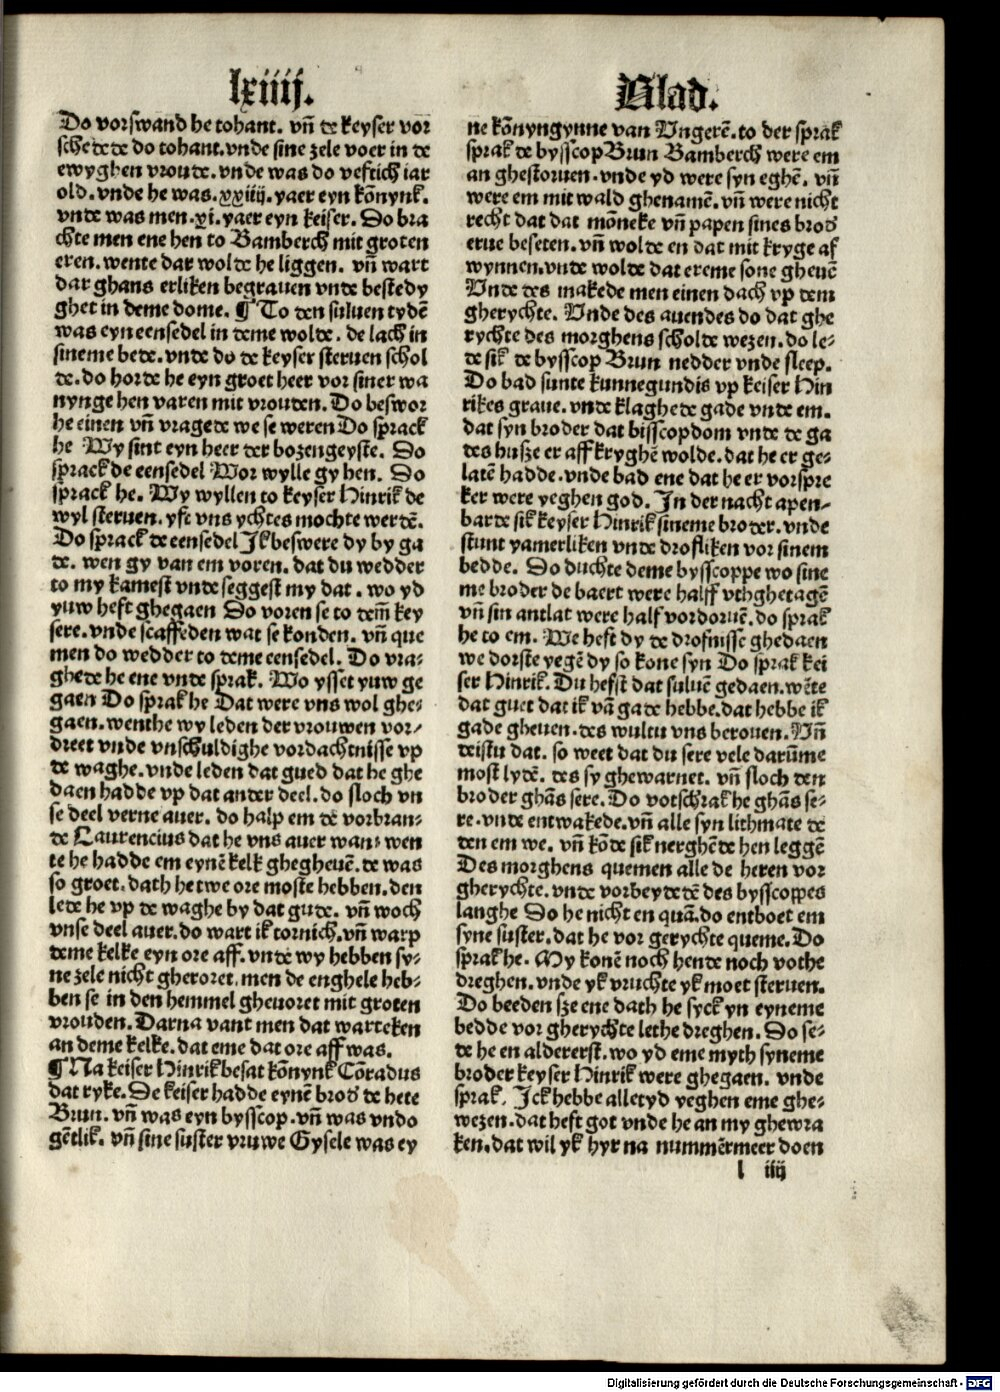 lxiiij.
Do vorswand he tohant. vñ de keyser vor
schedede do tohant. vnde sine zele voer in de
ewyghen vroude. vnde was do veftich iar
old. vnde he was. xxiiij. yaer eyn kőnynk.
vnde was men. xi. yaer eyn keiser. Do bra
chte men ene hen to Bamberch mit groten
eren. wente dar wolde he liggen. vñ wart
dar ghans erliken begrauen vnde bestedy
ghet in deme dome. ¶ To den suluen tydē
was eyn eensedel in deme wolde. de lach in
sineme bede. vnde do de keyser steruen schol
de. do horde he eyn groet heer vor siner wa
nynge hen varen mit vrouden. Do beswor
he einen vñ vragede we se weren Do sprack
he Wy sint eyn heer der bozengeyste. Do
sprack de eensedel Wor wylle gy hen. Do
sprack he. Wy wyllen to keyser Hinrik de
wyl steruen. yft vns ychtes mochte werdē.
Do sprack de eensedel Jk beswere dy by ga
de. wen gy van em voren. dat du wedder
to my kamest vnde seggest my dat. wo yd
yuw heft ghegaen Do voren se to dem̄ key
sere. vnde scaffeden wat se konden. vñ que
men do wedder to deme eensedel. Do vra-
ghede he ene vnde sprak. Wo ysset yuw ge
gaen Do sprak he Dat were vns wol ghe-
gaen. wenthe wy leden der vrouwen vor-
dreet vnde vnschuldighe vordachtnisse vp
de waghe. vnde leden dat gued dat he ghe
daen hadde vp dat ander deel. do sloch vn
se deel verne auer. do halp em de vorbran-
de Laurencius dat he vns auer wan. wen
te he hadde em eynē kelk ghegheuē. de was
so groet. dath he twe ore moste hebben. den
lede he vp de waghe by dat gude. vñ woch
vnse deel auer. do wart ik tornich. vñ warp
deme kelke eyn ore aff. vnde wy hebben sy-
ne zele nicht gheroret. men de enghele heb-
ben se in den hemmel gheuoret mit groten
vrouden. Darna vant men dat warteken
an deme kelke. dat eme dat ore aff was.
¶ Na keiser Hinrik besat kőnynk Cōradus
dat ryke. De keiser hadde eynē brod' de hete
Brun. vñ was eyn bysscop. vñ was vndo
gētlik. vñ sine suster vruwe Gysele was ey
Blad.
ne kőnyngynne van Vngerē. to der sprak
sprak de bysscop Brun Bamberch were em
an ghestoruen. vnde yd were syn eghē. vñ
were em mit wald ghenamē. vñ were nicht
recht dat dat mőneke vñ papen sines brod'
erue beseten. vñ wolde en dat mit kryge af
wynnen. vnde wolde dat ereme sone gheuē
Vnde des makede men einen dach vp dem
gherychte. Vnde des auendes do dat ghe
rychte des morghens scholde wezen. do le-
de sik de bysscop Brun nedder vnde sleep.
Do bad sunte kunnegundis vp keiser Hin
rikes graue. vnde klaghede gade vnde em.
dat syn broder dat bisscopdom vnde de ga
des husze er aff kryghē wolde. dat he er ge-
latē hadde. vnde bad ene dat he er vorspre
ker were yeghen god. In der nacht apen-
barde sik keyser Hinrik sineme broder. vnde
stunt yamerliken vnde drofliken vor sinem
bedde. Do duchte deme bysscoppe wo sine
me broder de baert were halff vthghetagē
vñ sin antlat were half vordoruē. do sprak
he to em. We heft dy de drofnisse ghedaen
we dorste yegē dy so kone syn Do sprak kei
ser Hinrik. Du hefst dat suluē gedaen. wēte
dat guet dat ik vā gade hebbe. dat hebbe ik
gade gheuen. des wultu vns berouen. Vñ
deistu dat. so weet dat du sere vele darūme
most lydē. des sy ghewarnet. vñ sloch den
broder ghās sere. Do votschrak he ghās se-
re. vnde entwakede. vñ alle syn lithmate de
den em we. vñ kőde sik nerghēde hen leggē
Des morghens quemen alle de heren vor
gherychte. vnde vorbeydedē des bysscopes
langhe Do he nicht en quā. do entboet em
syne suster. dat he vor gerychte queme. Do
sprak he. My konē noch hende noch vothe
dreghen. vnde yk vruchte yk moet steruen.
Do beeden sze ene dath he syck yn eyneme
bedde vor gherychte lethe dreghen. Do se-
de he en aldererst. wo yd eme myth syneme
broder keyser Hinrik were ghegaen. vnde
sprak. Jck hebbe alletyd yeghen eme ghe-
wezen. dat heft got vnde he an my ghewra
ken. dat wil yk hyr na nummērmeer doen
l iiij
Digitalisierung gefördert durch die Deutsche Forschungsgemeinschaft - DFG